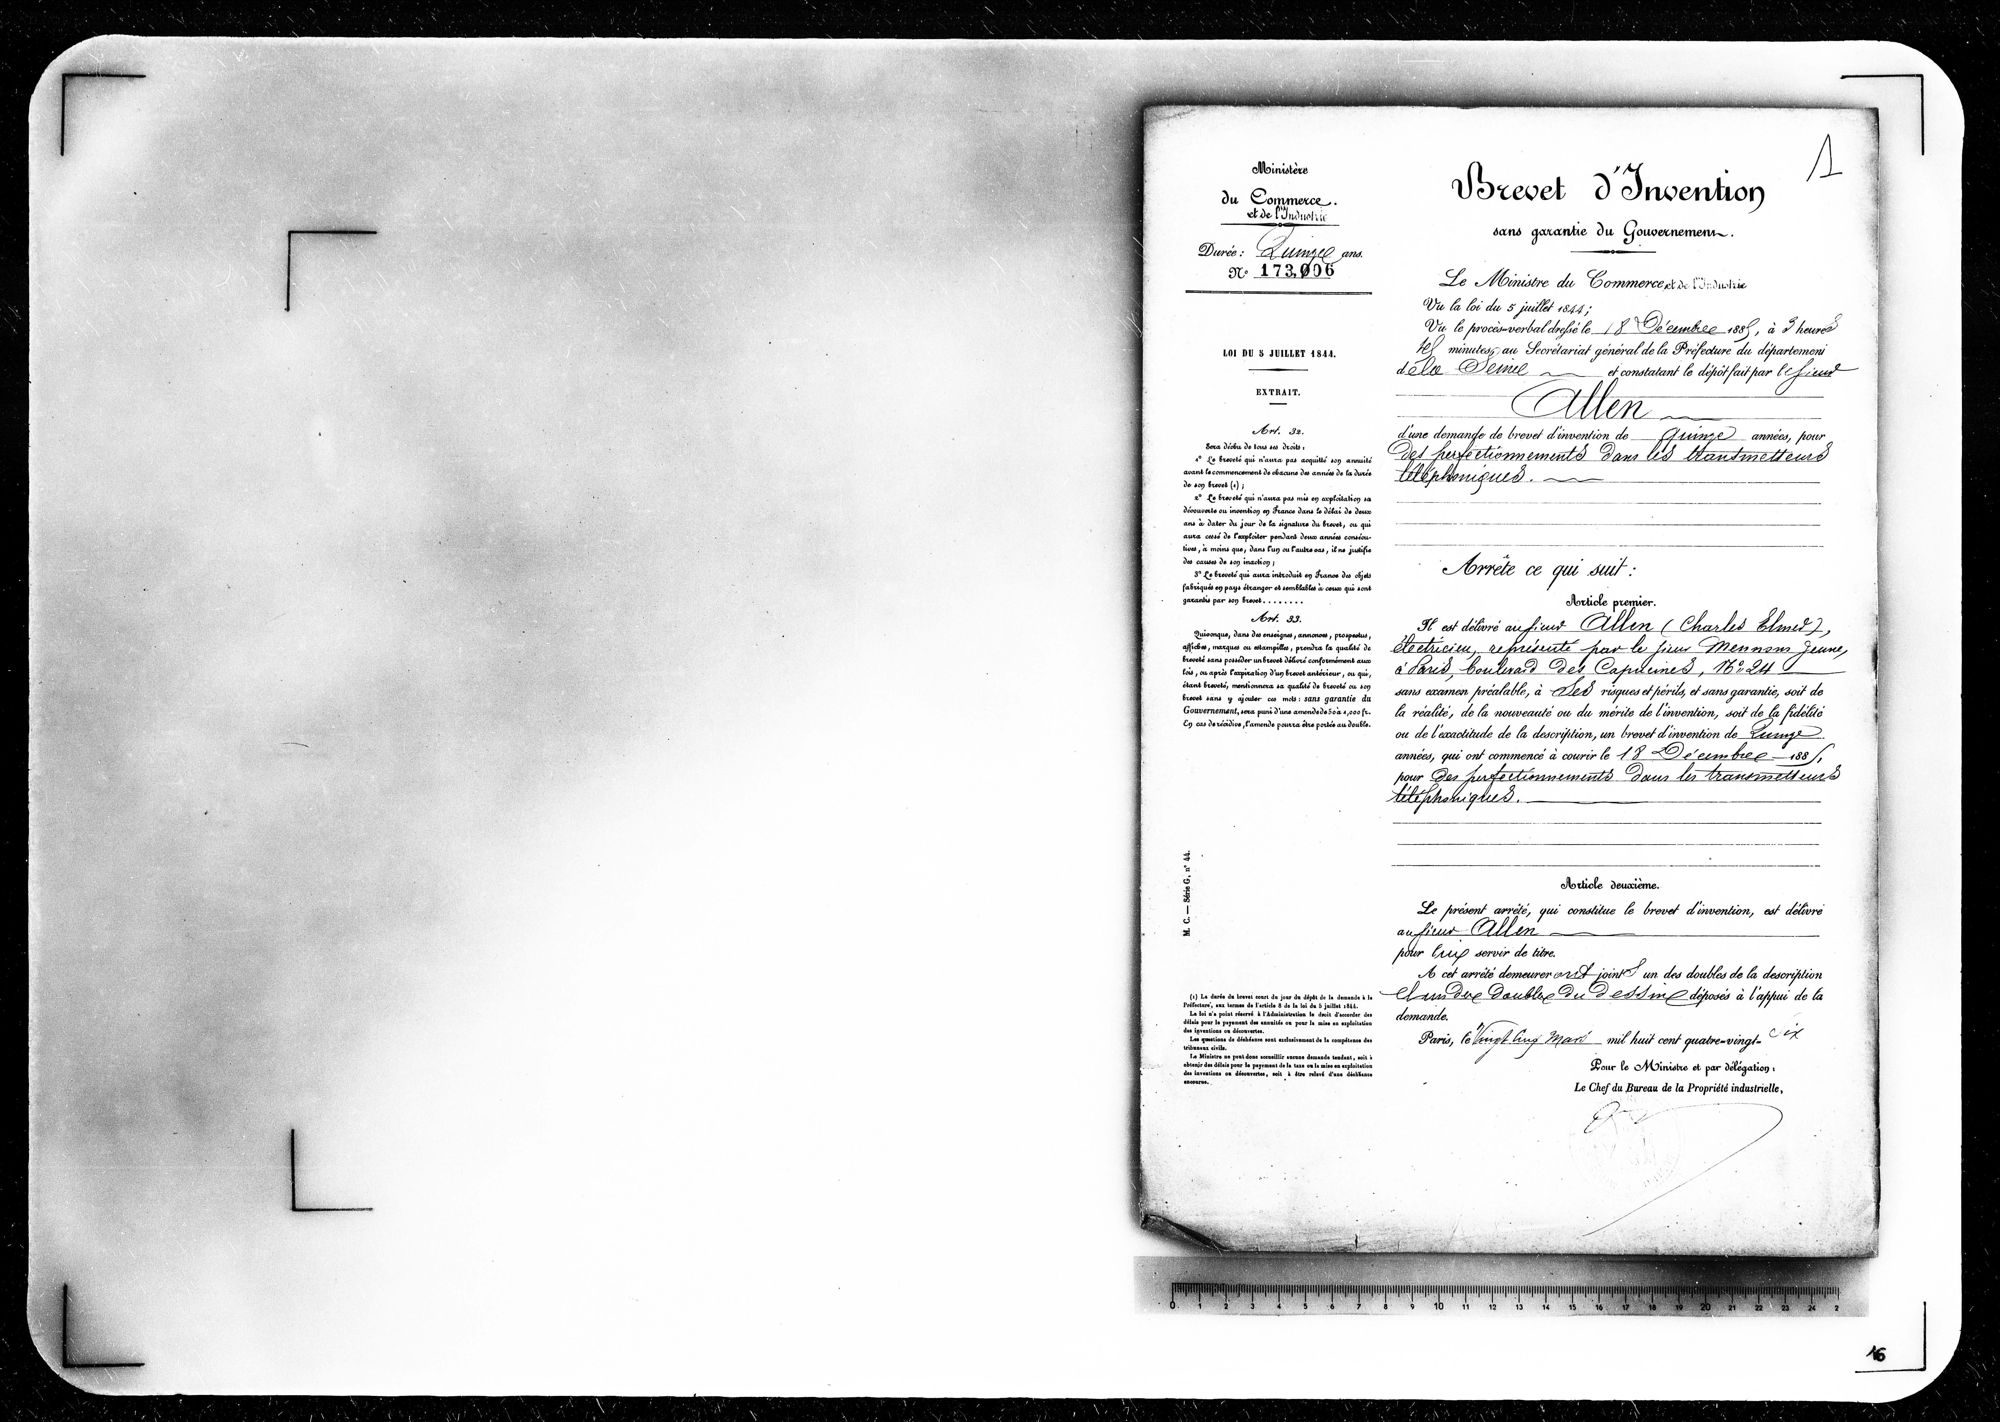 1
Ministère
du Commerce.
et de l'Industrie
Durée: Quinze ans.
N° 173,006
LOI DU 5 JUILLET 1844.
EXTRAIT.
Art. 32.
Sera déchu de tous ses droits:
1° Le breveté qui n'aura pas acquitté son annuité
avant le commencement de chacune des années de la durée
de son brevet (1);
2° Le breveté qui n'aura pas mis en exploitation sa
découverte ou invention en France dans le délai de deux
ans à dater du jour de la signature du brevet, ou qui
aura cessé de l'exploiter pendant deux années consécu-
tives, à moins que, dans l'un ou l'autre cas, il ne justifie
des causes de son inaction;
3° Le breveté qui aura introduit en France des objets
fabriqués en pays étranger et semblables à ceux qui sont
garantis par son brevet........
Art. 33.
Quiconque, dans des enseignes, annonces, prospectus,
affiches, marques ou estampilles, prendra la qualité de
breveté sans posséder un brevet délivré conformément aux
lois, ou après l'expiration d'un brevet antérieur, ou qui,
étant breveté, mentionnera sa qualité de breveté ou son
brevet sans y ajouter ces mots: sans garantie du
Gouvernement, sera puni d'une amende de 50 à 1,000 fr.
En cas de récidive, l'amende pourra être portée au double.
M. C. — Série G, n° 44.
(1) La durée du brevet court du jour du dépôt de la demande à la
Préfecture, aux termes de l'article 8 de la loi du 5 juillet 1844.
La loi n'a point réservé à l'Administration le droit d'accorder des
délais pour le payement des annuités ou pour la mise en exploitation
des inventions ou découvertes.
Les questions de déchéance sont exclusivement de la compétence des
tribunaux civils.
Le Ministre ne peut donc accueillir aucune demande tendant, soit à
obtenir des délais pour le payement de la taxe ou la mise en exploitation
des inventions ou découvertes, soit à être relevé d'une déchéance
encourue.
Brevet d'Invention
sans garantie du Gouvernement.
Le Ministre du Commerce et de l'Industrie
Vu la loi du 5 juillet 1844;
Vu le procès-verbal dressé le 18 Décembre 1885, à 3 heures
45 minutes, au Secrétariat général de la Préfecture du département
de la Seine et constatant le dépôt fait par le sieur
Allen
d'une demande de brevet d'invention de quinze années, pour
des perfectionnements dans les transmetteurs
téléphoniques.
Arrête ce qui suit:
Article premier.
Il est délivré au sieur Allen (Charles Elmer),
électricien, représenté par le sieur Mennons jeune,
à Paris, boulevard des Capucines, N° 24
sans examen préalable, à ses risques et périls, et sans garantie, soit de
la réalité, de la nouveauté ou du mérite de l'invention, soit de la fidélité
ou de l'exactitude de la description, un brevet d'invention de quinze
années, qui ont commencé à courir le 18 Décembre 1885,
pour des perfectionnements dans les transmetteurs
téléphoniques.
Article deuxième.
Le présent arrêté, qui constitue le brevet d'invention, est délivré
au sieur Allen
pour lui servir de titre.
A cet arrêté demeureront joints un des doubles de la description
et un des doubles du dessin déposés à l'appui de la
demande.
Paris, le Vingt cinq Mars mil huit cent quatre-vingt-six
Pour le Ministre et par délégation:
Le Chef du Bureau de la Propriété industrielle,
0 1 2 3 4 5 6 7 8 9 10 11 12 13 14 15 16 17 18 19 20 21 22 23 24 2
16